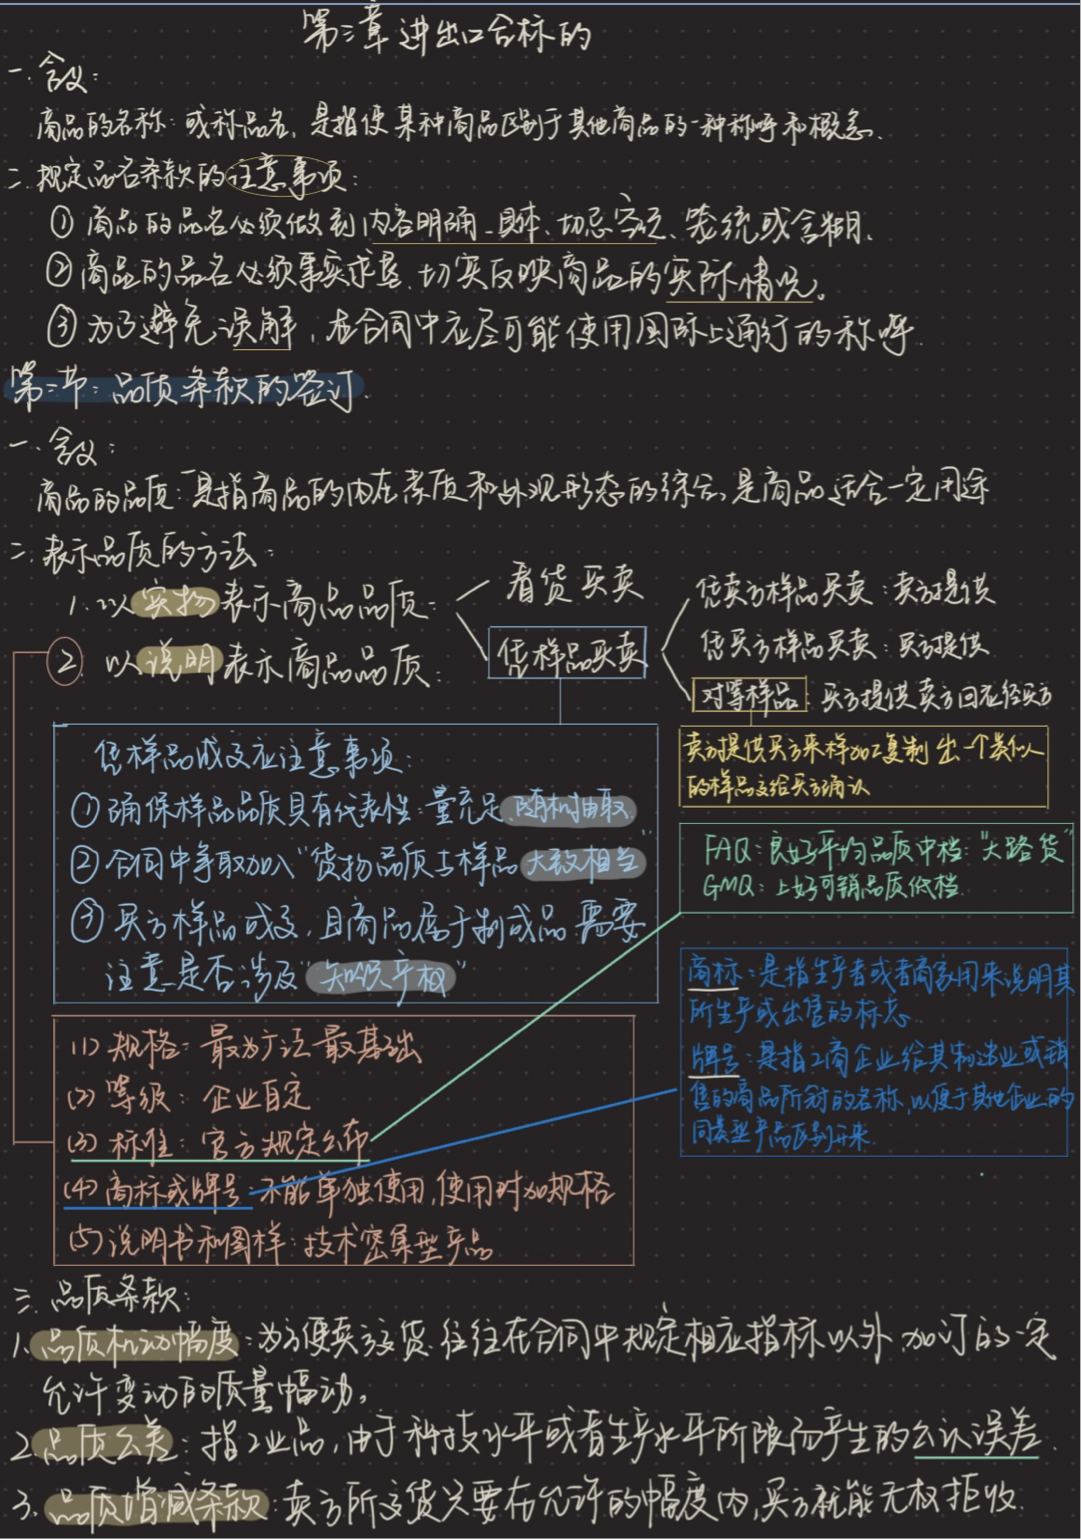 第三章 进出口合标的
一. 含义:
商品的名称: 或称品名, 是指使某种商品区别于其他商品的一种称呼和概念.
二. 规定品名条款的注意事项:
① 商品的品名必须做到内容明确、具体、切忌空泛、笼统或含糊.
② 商品的品名必须事实求是, 切实反映商品的实际情况。
③ 为了避免误解, 在合同中应尽可能使用国际上通行的称呼.
第二节: 品质条款的签订.
一. 含义:
商品的品质: 是指商品的内在素质和外观形态的综合, 是商品适合一定用途
二. 表示品质的方法:
1. 以实物表示商品品质:
看货买卖
凭样品买卖
凭卖方样品买卖: 卖方提供
凭买方样品买卖: 买方提供
对等样品: 买方提供卖方回症径买方
2. 以说明表示商品品质:
卖方提供买方来样加工复制出一个类似
的样品交给买方确认
凭样品成交应注意事项:
① 确保样品品质具有代表性: 量充足, 随机抽取
② 合同中争取加入“货物品质与样品大致相当”
③ 买方样品成交, 且商品属于制成品 需要
注意是否涉及“知识产权”
FAQ: 良好平均品质中档: “大路货”
GMQ: 上好可销品质低档.
商标: 是指生产者或者商家用来说明其
所生产或出售的标志.
牌号: 是指工商企业给其制造业或销
售的商品所冠的名称, 以便于其他企业的
同类型产品区别开来.
(1) 规格: 最为广泛最基础
(2) 等级: 企业自定
(3) 标准: 官方规定公布
(4) 商标或牌号: 不能单独使用, 使用时加规格
(5) 说明书和图样: 技术密集型产品
三. 品质条款:
1. 品质机动幅度: 为方便卖方交货, 往往在合同中规定相应指标以外, 加订的一定
允许变动的质量幅动。
2. 品质公差: 指工业品, 由于科技水平或者生产水平所限而产生的公认误差.
3. 品质增减条款: 卖方所交货只要在允许的幅度内, 买方就能无权拒收.